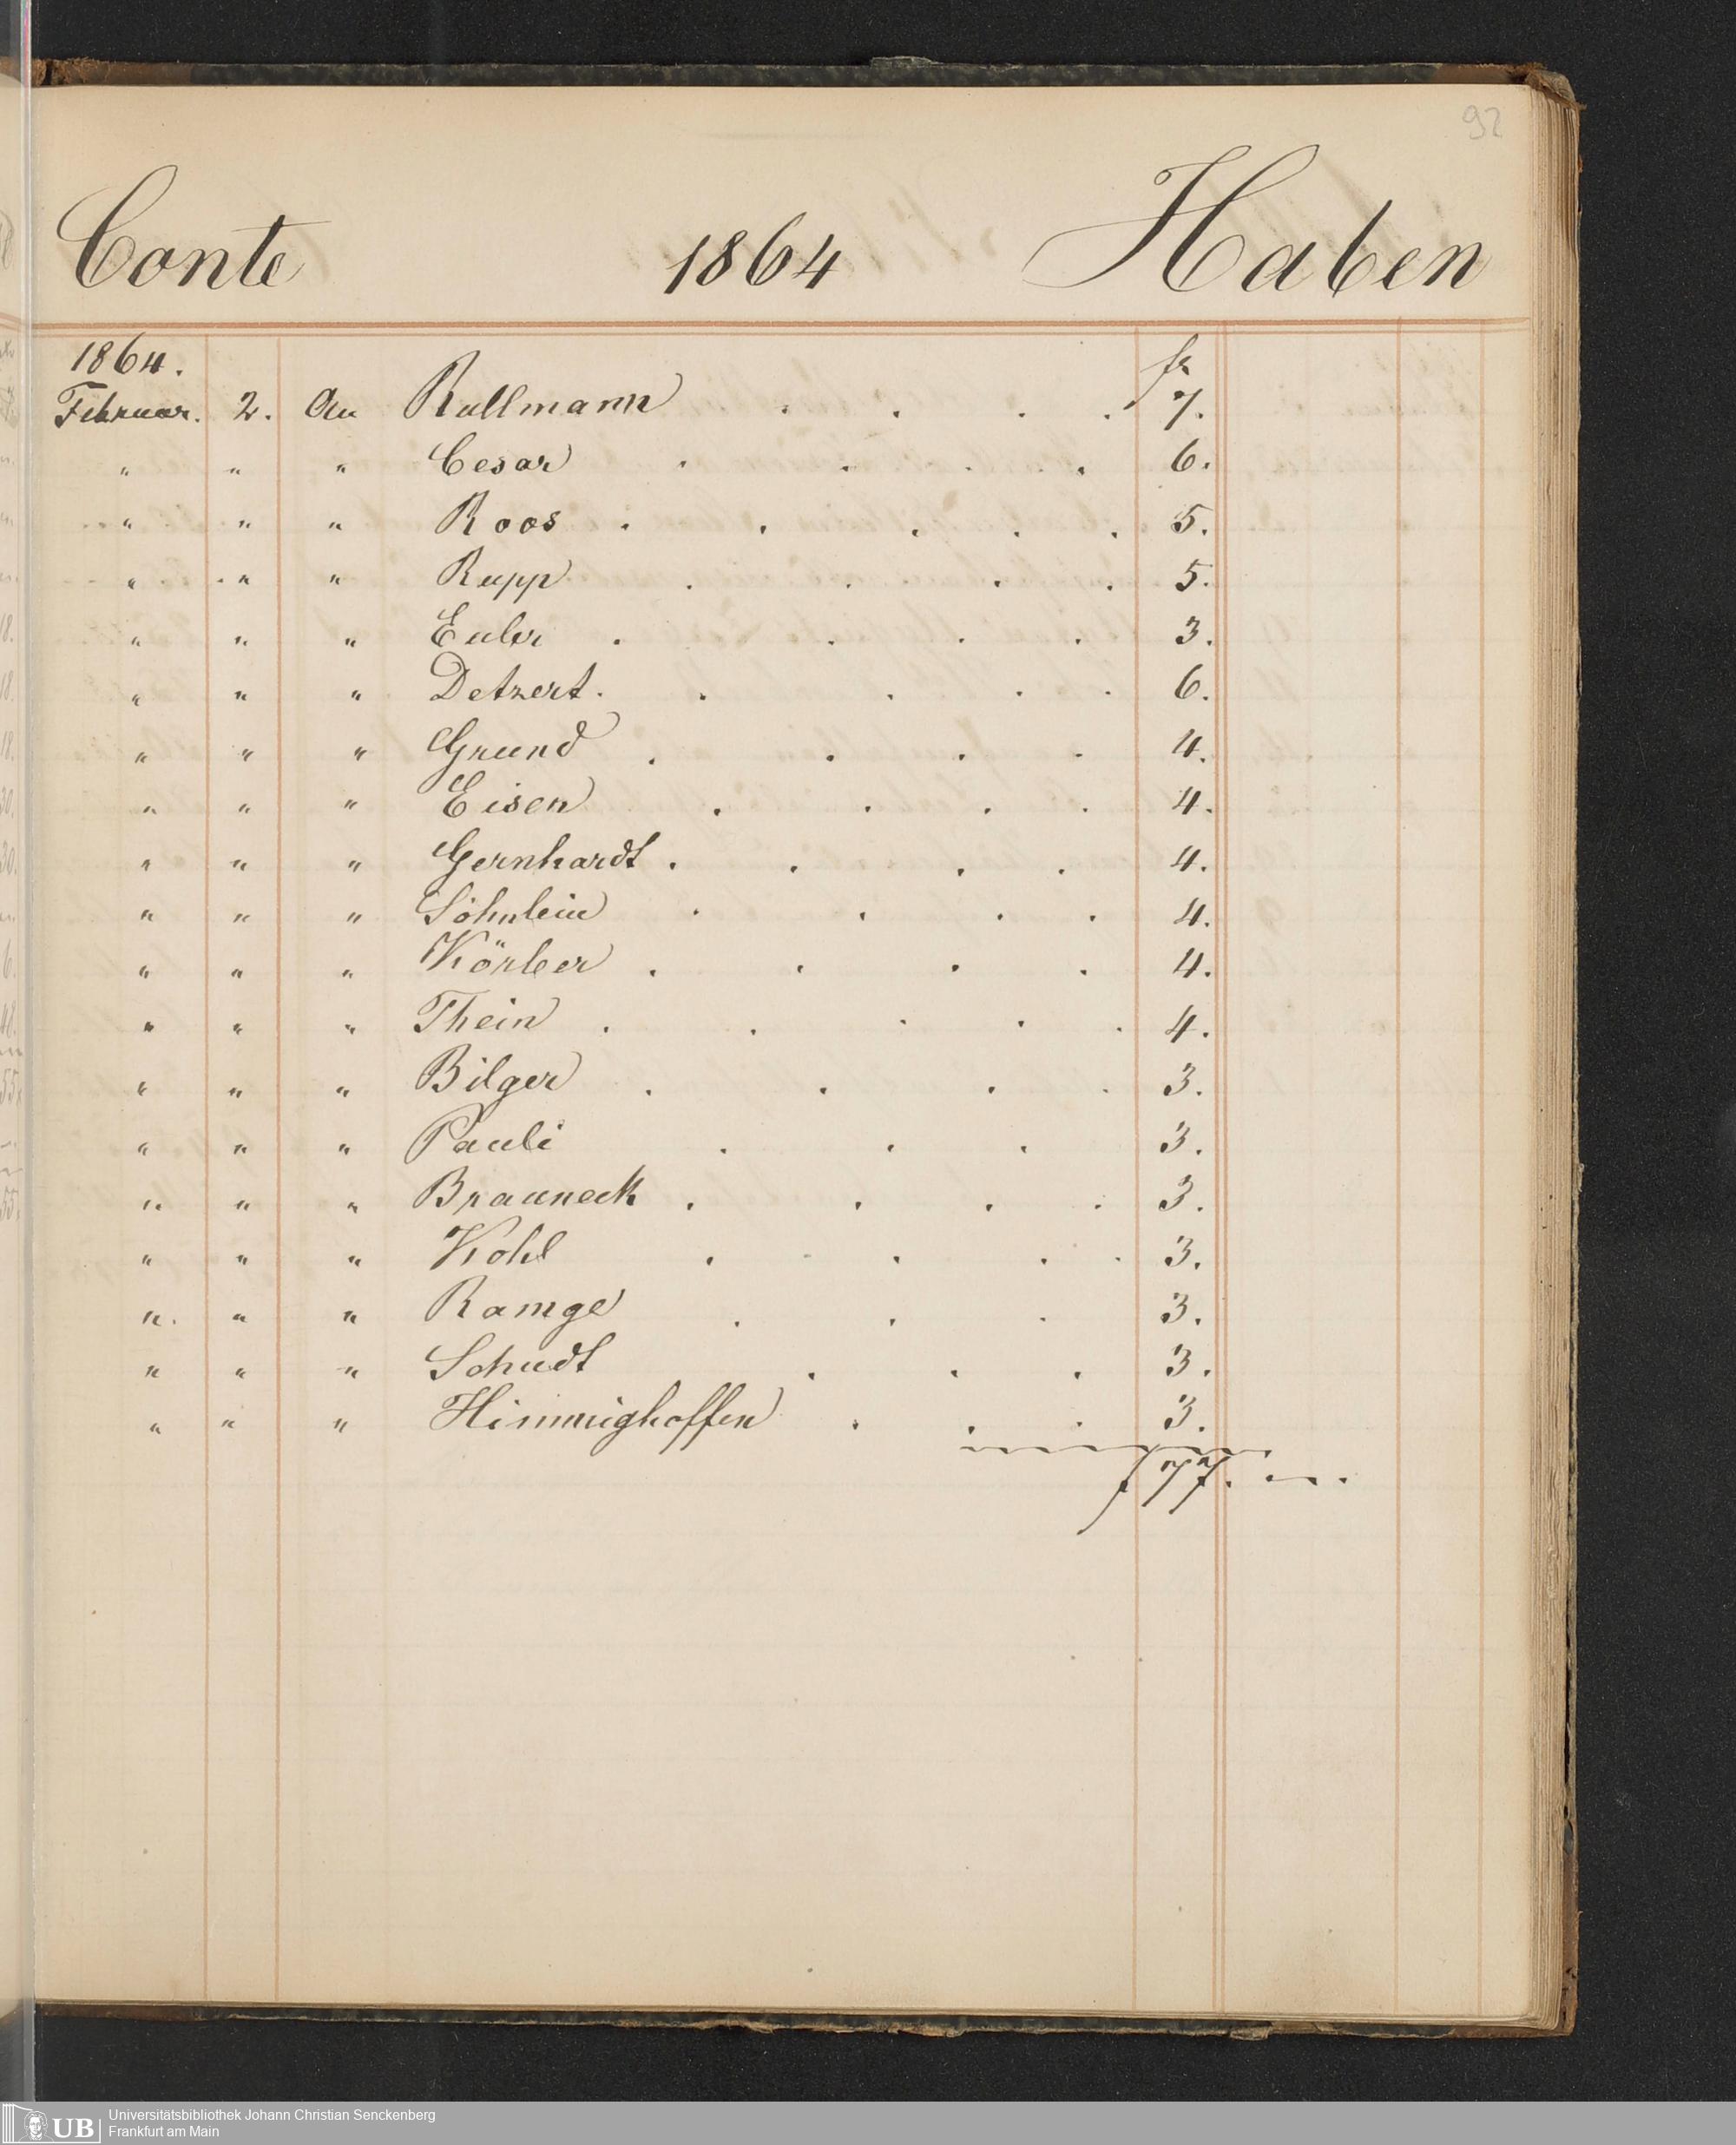 92
Conte 1864 Haben
1864. fr
Februar. 2. An Rullmann . . . . 7.
" " " Cesar . . . . 6.
" " " Roos . . . . . 5.
" " " Rupp . . . . 5.
" " " Euler . . . . 3.
" " " Detzert . . . . . 6.
" " " Grund . . . . 4.
" " " Eisen . . . . 4.
" " " Gernhardt . . . . 4.
" " " Söhnlein . . . . 4.
" " " Körber . . . . 4.
" " " Thein . . . . . 4.
" " " Bilger . . . . 3.
" " " Pauli . . . 3.
" " " Brauneck . . . . 3.
" " " Kohl . . . . 3.
" " " Ramge . . . 3.
" " " Schudt . . . 3.
" " " Himmighoffen . . . 3.
f 77. — .
UB Universitätsbibliothek Johann Christian Senckenberg
Frankfurt am Main